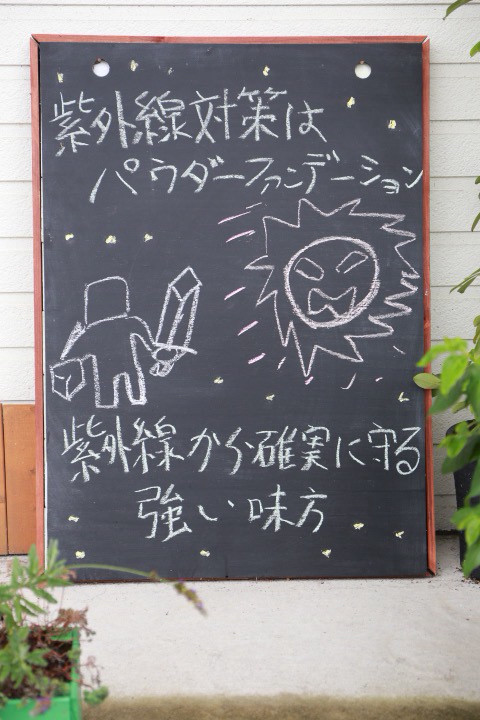 紫外線対策は
パウダーファンデーション
紫外線から確実に守る
強い味方